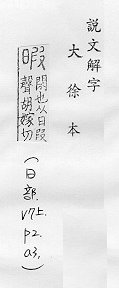 說文解字
大徐本
暇 閑也从日叚
聲胡嫁切
(日部.
V7上.
P2.
a3.)